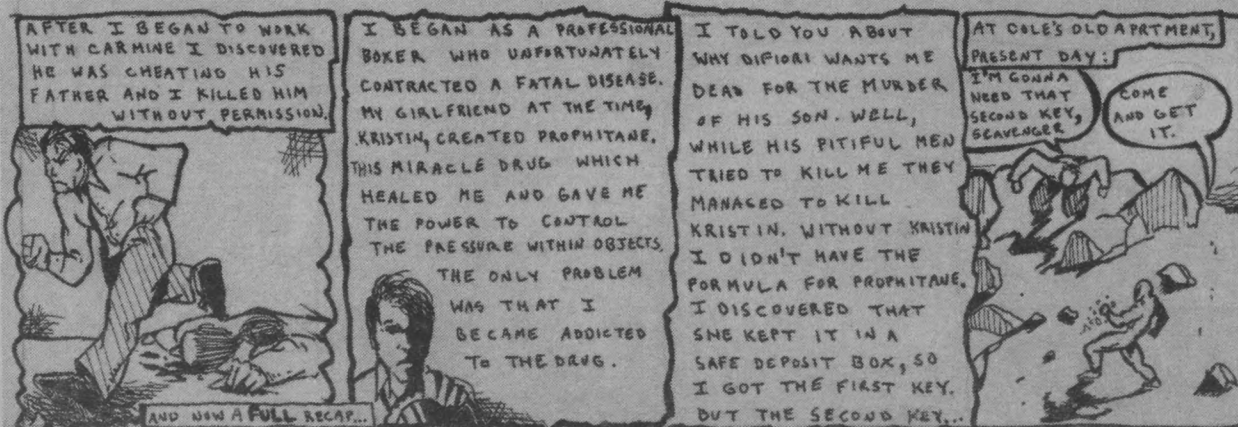 AFTER I BEGAN TO WORK
WITH CARMINE I DISCOVERED
HE WAS CHEATING HIS
FATHER AND I KILLED HIM
WITHOUT PERMISSION.
AND NOW A FULL RECAP...
I BEGAN AS A PROFESSIONAL
BOXER WHO UNFORTUNATELY
CONTRACTED A FATAL DISEASE.
MY GIRLFRIEND AT THE TIME,
KRISTIN, CREATED PROPHITANE.
THIS MIRACLE DRUG WHICH
HEALED ME AND GAVE ME
THE POWER TO CONTROL
THE PRESSURE WITHIN OBJECTS.
THE ONLY PROBLEM
WAS THAT I
BECAME ADDICTED
TO THE DRUG.
I TOLD YOU ABOUT
WHY DIFIORI WANTS ME
DEAD FOR THE MURDER
OF HIS SON. WELL,
WHILE HIS PITIFUL MEN
TRIED TO KILL ME THEY
MANAGED TO KILL
KRISTIN. WITHOUT KRISTIN
I DIDN'T HAVE THE
FORMULA FOR PROPHITANE.
I DISCOVERED THAT
SHE KEPT IT IN A
SAFE DEPOSIT BOX, SO
I GOT THE FIRST KEY.
BUT THE SECOND KEY...
AT COLE'S OLD APRTMENT,
PRESENT DAY:
I'M GONNA
NEED THAT
SECOND KEY,
SCAVENGER
COME
AND GET
IT.